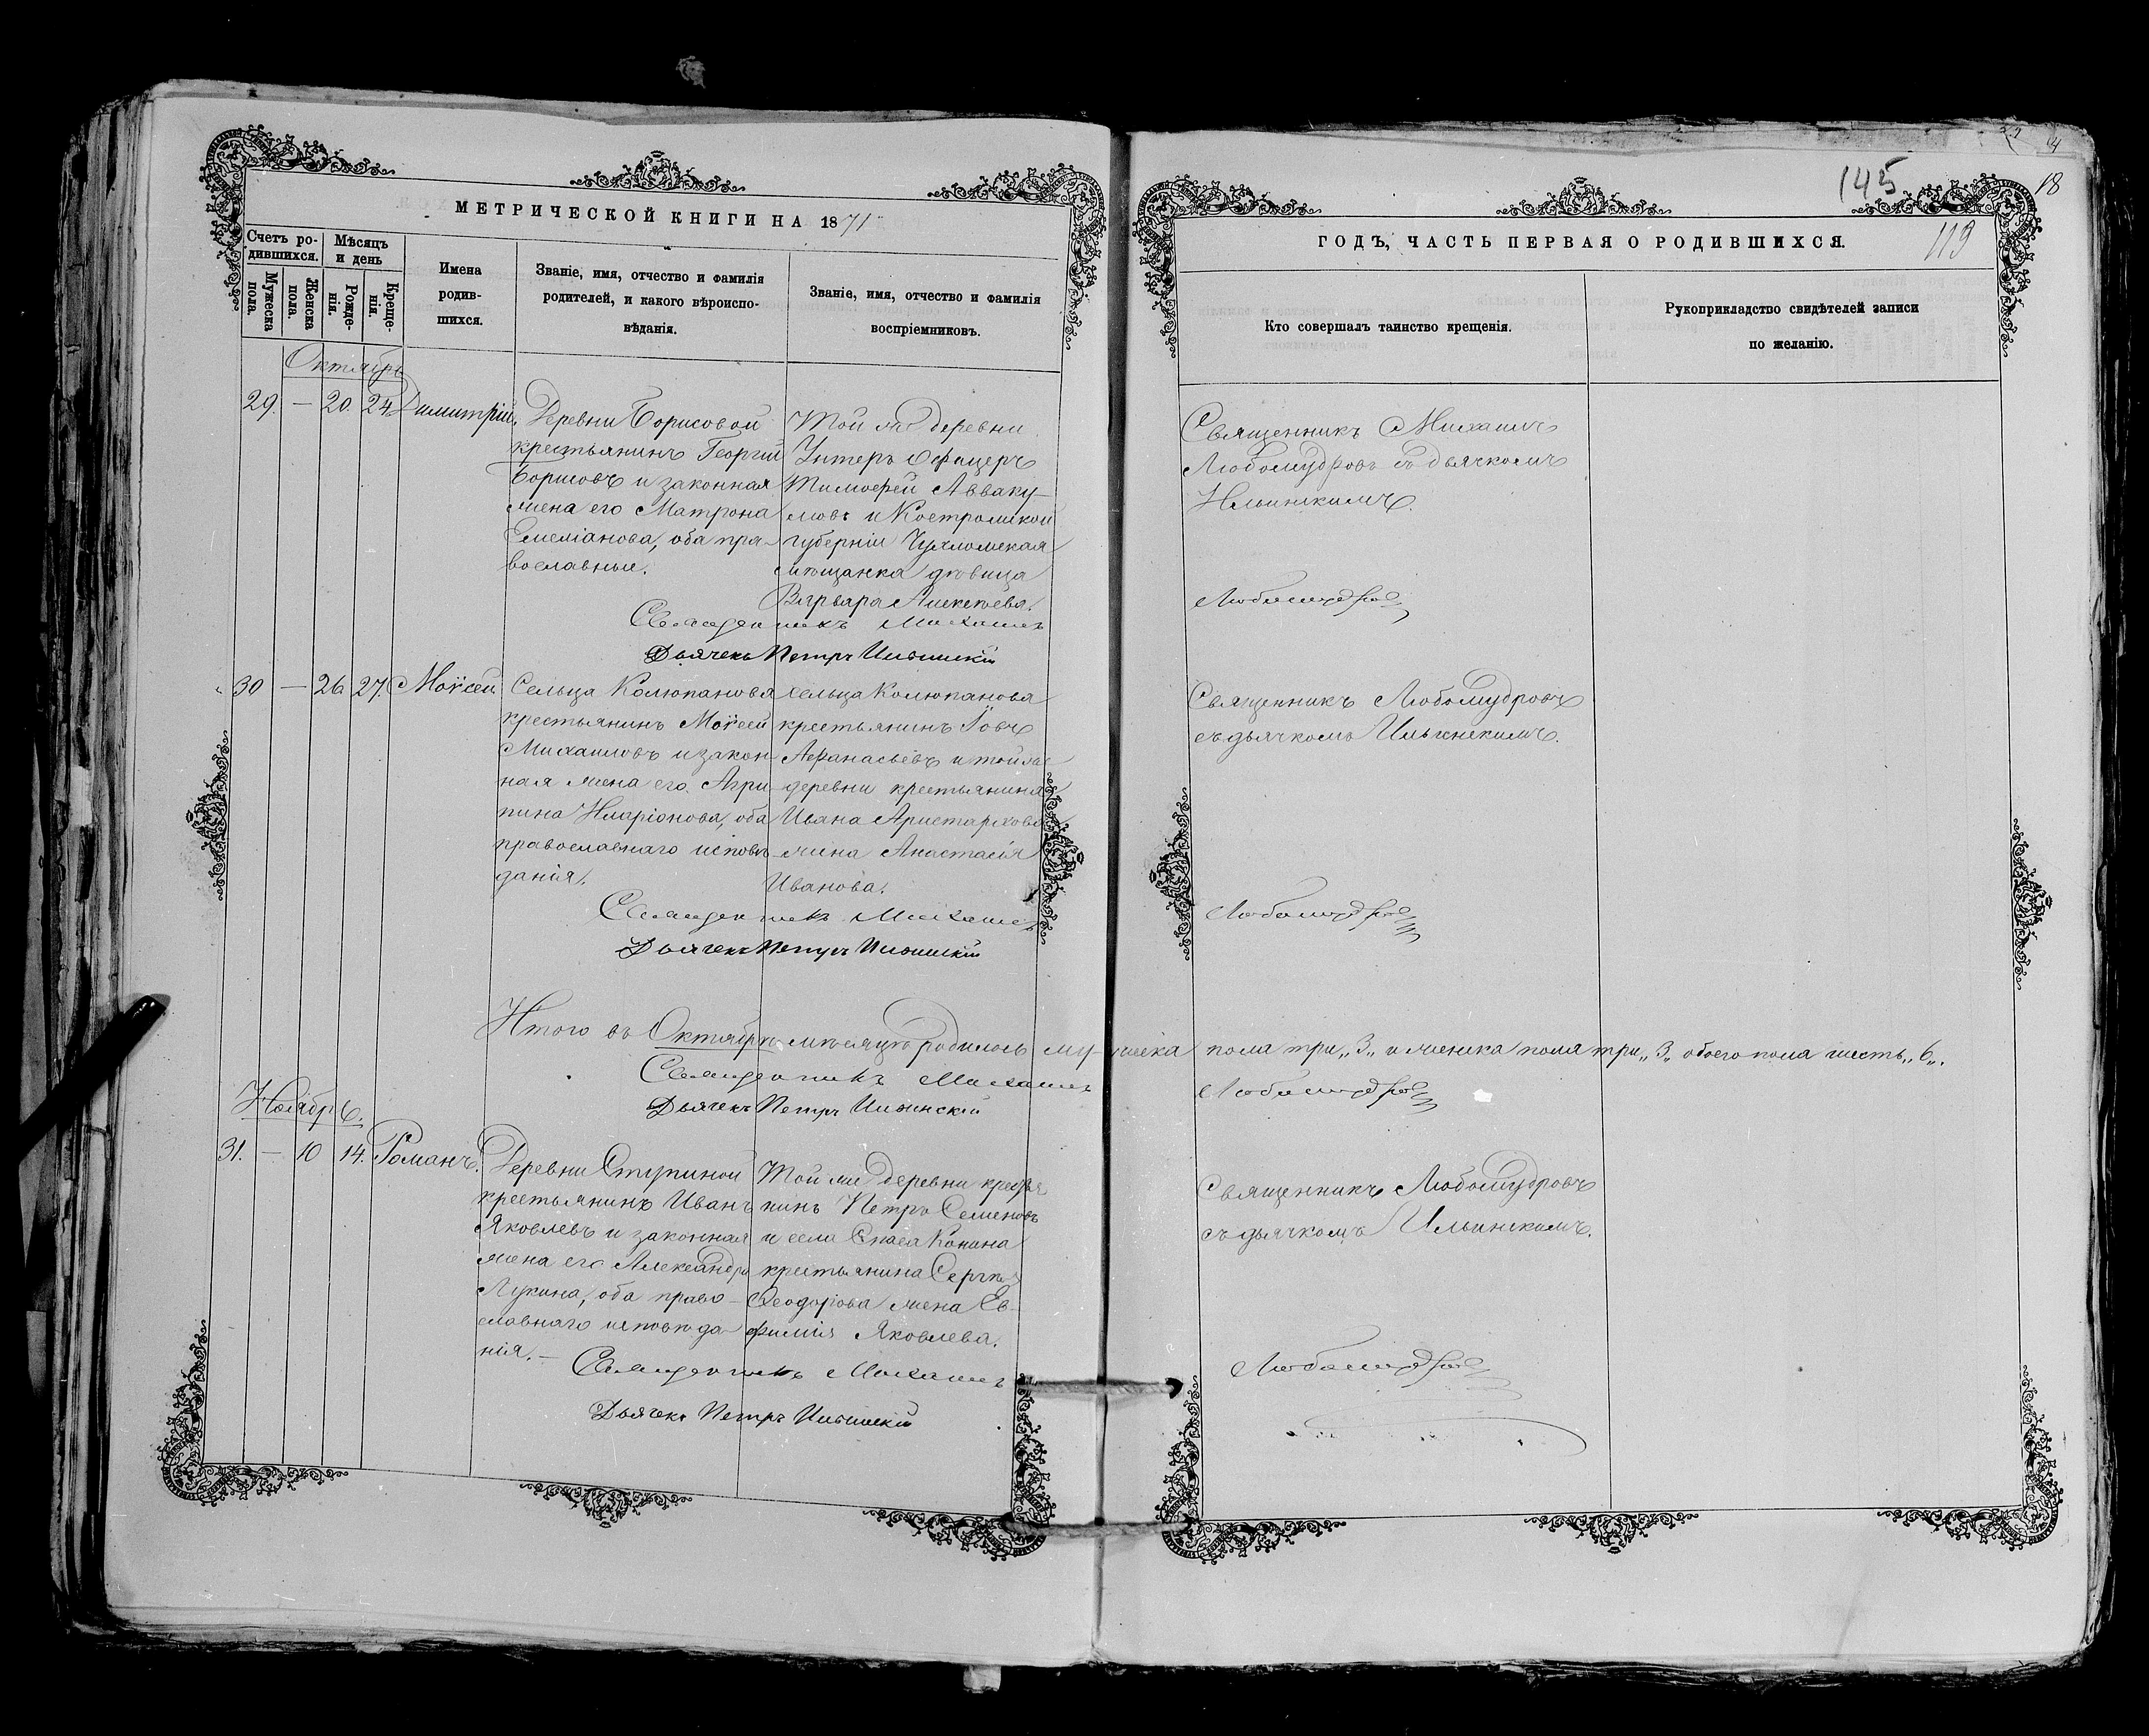 МЕТРИЧЕСКОЙ КНИГИ НА 1871
Счетъ ро-
дившихся.
Мѣсяцъ
и день
Мужеска
пола.
Женска
пола.
Рожде-
нія.
Креще-
нія.
Имена
родив-
шихся.
Званіе, имя, отчество и фамилія
родителей, и какого вѣроиспо-
вѣданія.
Званіе, имя, отчество и фамилія
воспріемниковъ.
Октябрь
29. — 20. 24. Димитрій.
Деревни Борисовой
крестьянинъ Георгій
Борисовъ и законная
жена его Матрона
Емеліанова, оба пра-
вославные.
Той же деревни
Унтеръ Офицеръ
Тимофей Авваку-
мовъ и Костромской
губерніи Чухломская
мѣщанка дѣвица
Варвара Алексѣева.
Священникъ Михаилъ
Дьячекъ Петръ Ильинскій
30 — 26 27. Моѵсей
Сельца Колюпанова
крестьянинъ Моѵсей
Михаиловъ и закон-
ная жена его Агри-
пина Иларіонова, оба
православнаго исповѣ-
данія.
сельца Колюпанова
крестьянинъ Іовъ
Афанасьевъ и той же
деревни крестьянина
Ивана Аристархова
жена Анастасія
Иванова.
Священникъ Михаилъ
Дьячекъ Петръ Ильинскій
Итого въ Октябрѣ мѣсяцѣ родилось му-жеска пола три „3„ и женска пола три „3„ обоего пола шесть „6„.
Священникъ Михаилъ
Дьячекъ Петръ Ильинскій
Ноябрь.
31. — 10 14. Романъ.
Деревни Ступиной
крестьянинъ Иванъ
Яковлевъ и законная
жена его Александра
Лукина, оба право-
славнаго исповѣда-
нія.—
Той же деревни крестья
нинъ Петръ Семеновъ
и села Спаса Конина
крестьянина Сергѣя
Ѳеодорова жена Ев-
фимія Яковлева.
Священникъ Михаилъ
Дьячекъ Петръ Ильинскій
145
18
119
ГОДЪ, ЧАСТЬ ПЕРВАЯ О РОДИВШИХСЯ.
Кто совершалъ таинство крещенія.
Рукоприкладство свидѣтелей записи
по желанію.
Священникъ Михаилъ
Любомудровъ съ дьячкомъ
Ильинскимъ.
Любомудровъ
Священникъ Любомудровъ
съ дьячкомъ Ильинскимъ.
Любомудровъ
Любомудровъ
Священникъ Любомудровъ
съ дьячкомъ Ильинскимъ.
Любомудровъ